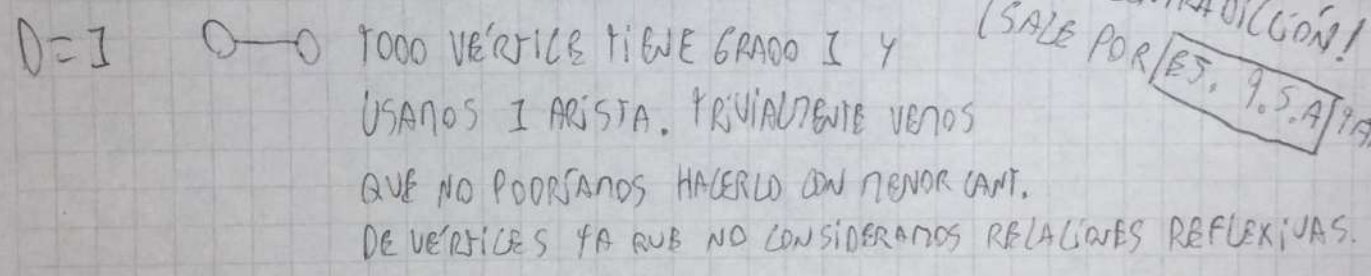 D=1 O—O TODO VÉRTICE TIENE GRADO 1 Y
USAMOS 1 ARISTA. TRIVIALMENTE VEMOS
QUE NO PODRÍAMOS HACERLO CON MENOR CANT.
DE VÉRTICES YA QUE NO CONSIDERAMOS RELACIONES REFLEXIVAS.
(SALE POR EJ. 9.5.A